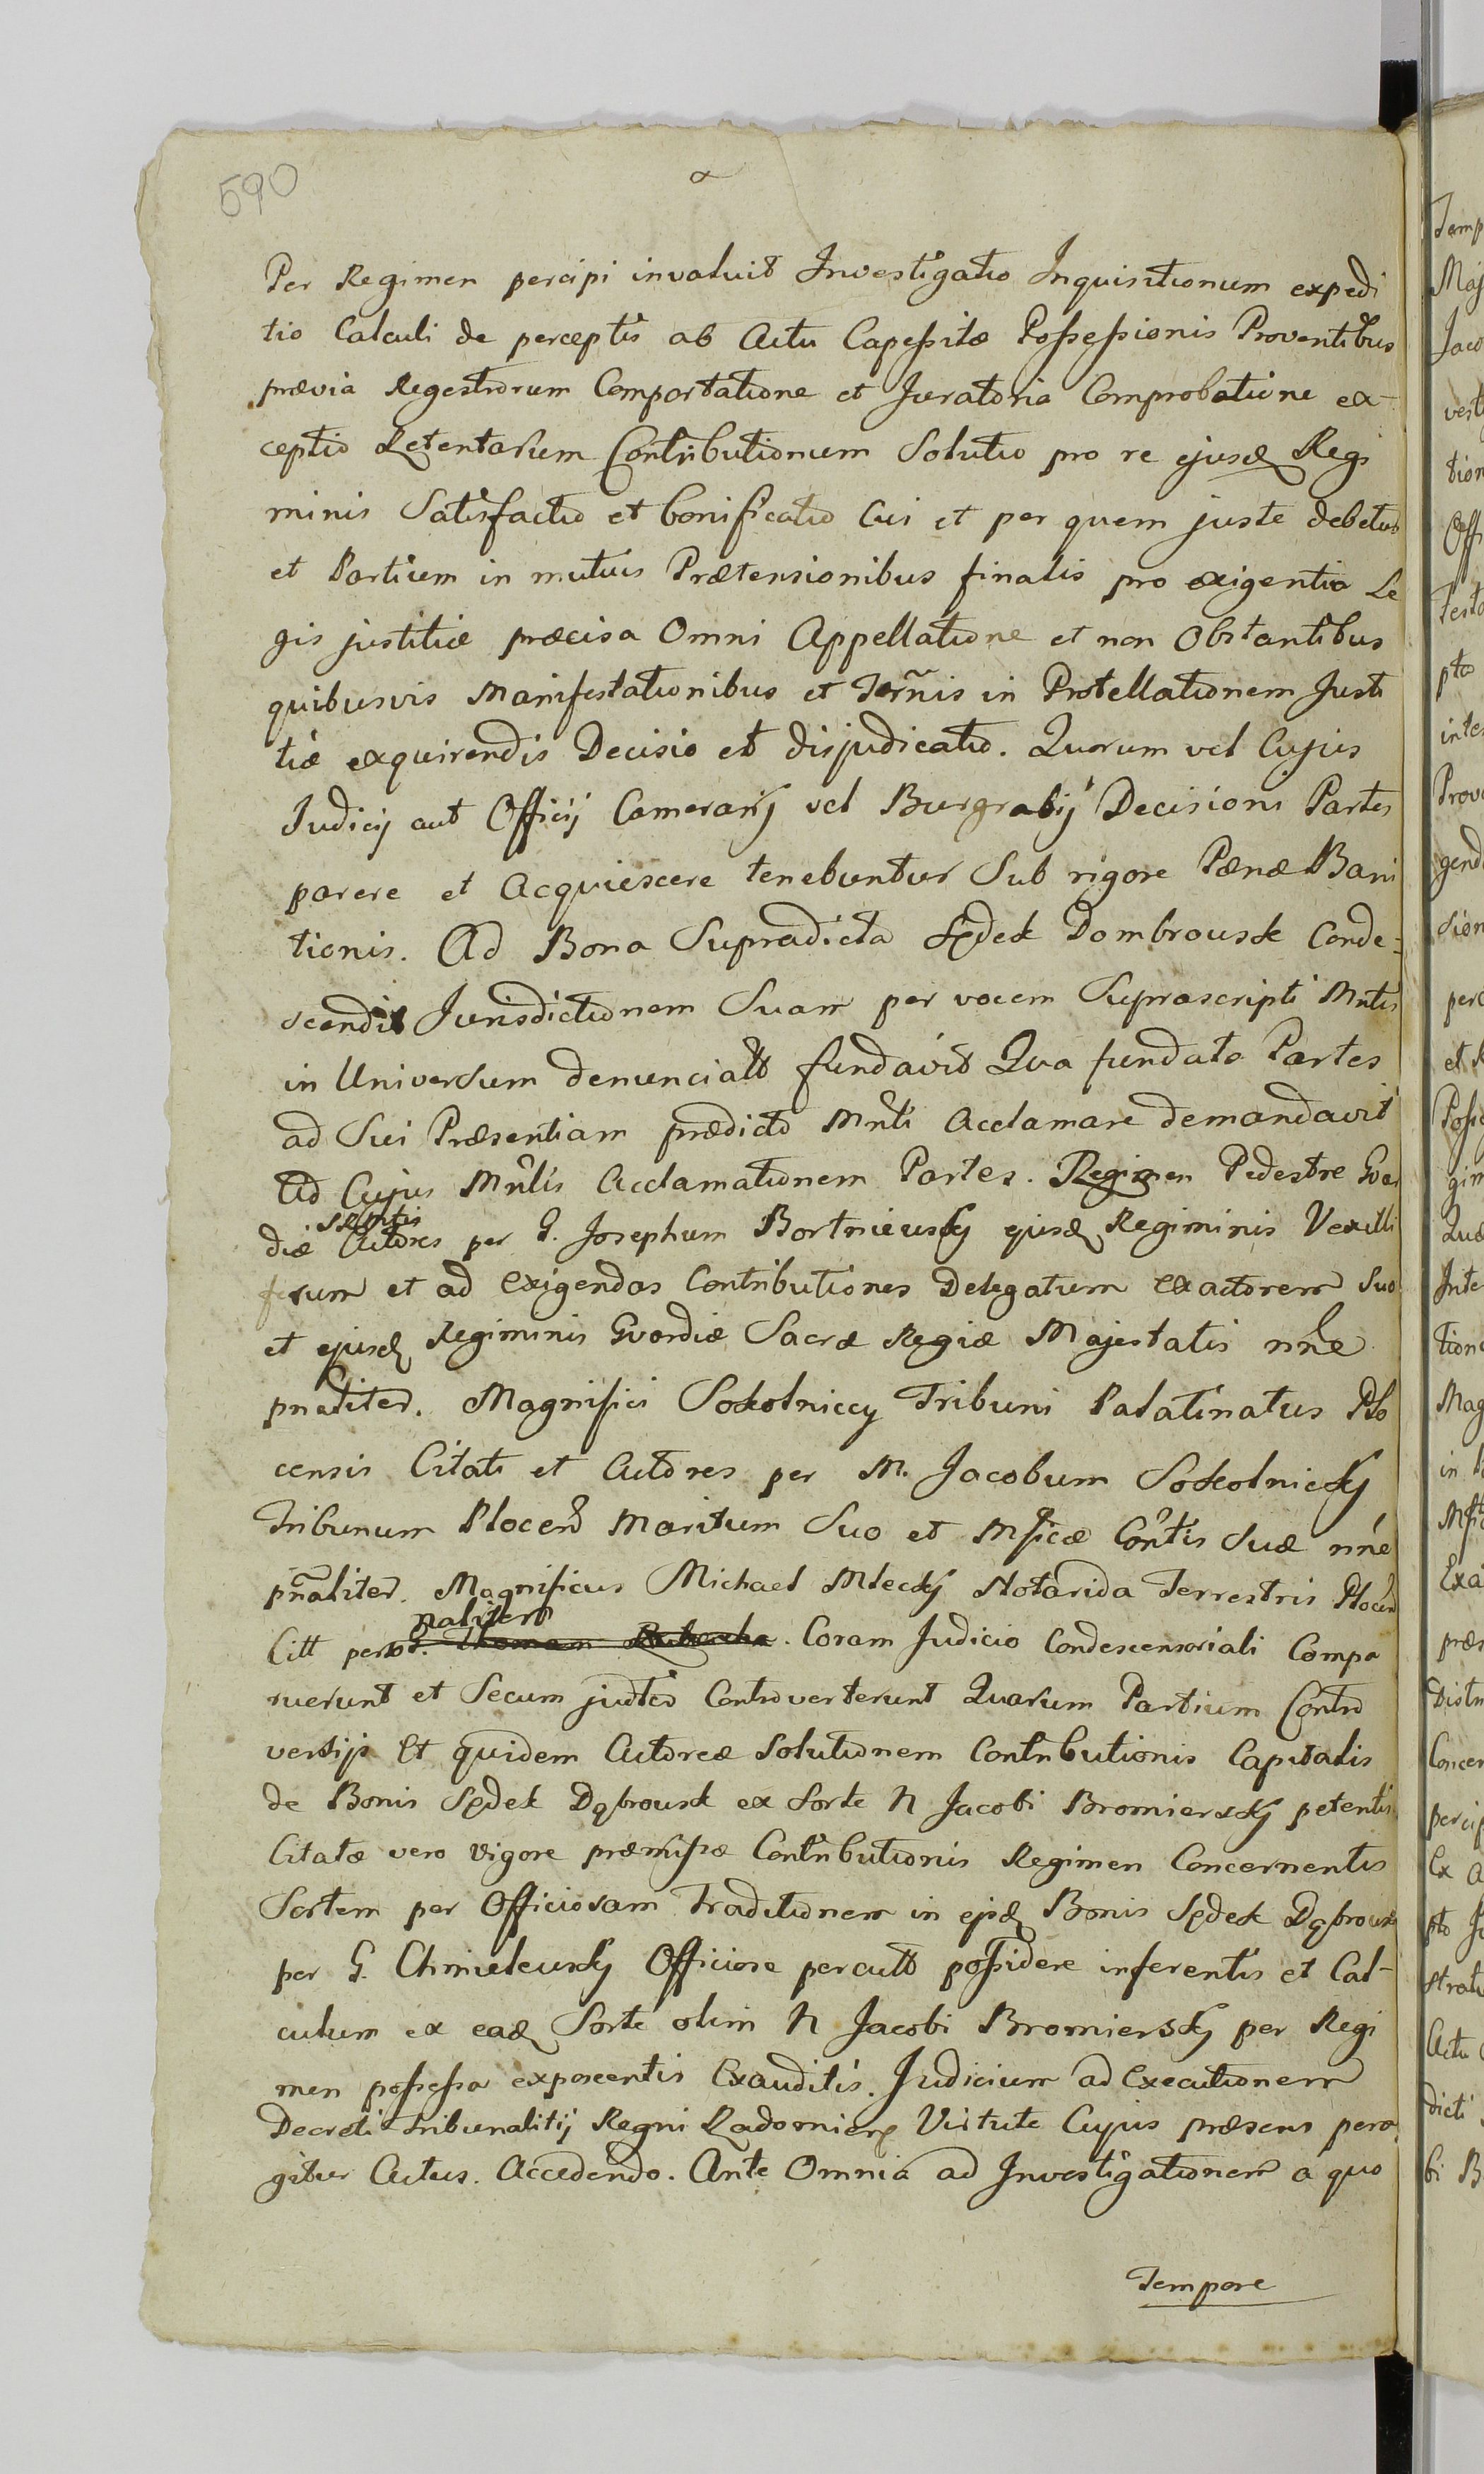 590
Per Regimen percipi invaluit Investigatio Inquisitionum expedi
tio Calculi de perceptis ab Actu Capessitæ Possessionis Proventibus
prævia Regestrorum Comportatione et Juratoria Comprobatione ex-
ceptio Retentarum Contributionum Solutio pro re ejusd Regi
minis Satisfactio et bonificatio Cui et per quem juste debetur
et Partium in mutuis Prætensionibus finalis pro exigentia Le
gis justitiæ præcisa Omni Appellatione et non Obstantibus
quibusvis Manifestationibus et Terñis in Protellationem Justi
tiæ exquirendis Decisio et disjudicatio. Quorum vel Cujus
Judicij aut Officij Camerarij vel Burgrabij Decisioni Partes
parere et acquiescere tenebuntur Sub rigore Pænæ Bani
tionis. Ad Bona Supradicta Sędek Dombrowsk Conde-
scendit Jurisdictionem Suam per vocem Suprascripti Mntis
in Universum denunciatt fundavit Qua fundata Partes
ad Sui Præsentiam prædicto Mnti Acclamare demandavit
Ad Cujus Mntis Acclamationem Partes. Regimen Pedestre Gvar
diæ Actores per G. Josephum Bortniewsky ejusd Regiminis Vexilli
ferum et ad exigendas Contributiones Delegatum exactorem Suo
et ejusd Regiminis Gvardiæ Sacræ Regiæ Majestatis nñe
pnaliter. Magnifici Sokolniccy Tribuni Palatinatus Plo
censis Citati et Actores per M. Jacobum Sokolnicky
Tribunum Plocen Maritum Suo et Mficæ Contis Suæ nñe
pñaliter. Magnificus Michael Mlecky Notarida Terrestris Plocen
naliter
Citt perso. Thomam. Coram Judicio Condescensoriali Compa
ruerunt et Secum judtio Controverterunt Quarum Partium Contro
versijs Et quidem Actoreæ Solutionem Contributionis Capitalis
de Bonis Sędek Dąbrowsk ex Sorte N Jacobi Bromiersky petentis
Citatæ vero vigore præmissæ Contributionis Regimen Concernentis
Sortem per Officiosam Traditionem in ejsd Bonis Sędek Dąbrowsk
per G. Chmielewsky Officiose percutt possidere inferentis et Cal-
culum ex ead Sorte olim N Jacobi Bromiersky per Regi
men possessa exposcentis Exauditis. Judicium ad Executionem
Decreti Tribunalitij Regni Radomien Virtute Cujus præsens pera
gitur Actus. Accedendo. Ante Omnia ad Investigationem a quo
Tempore